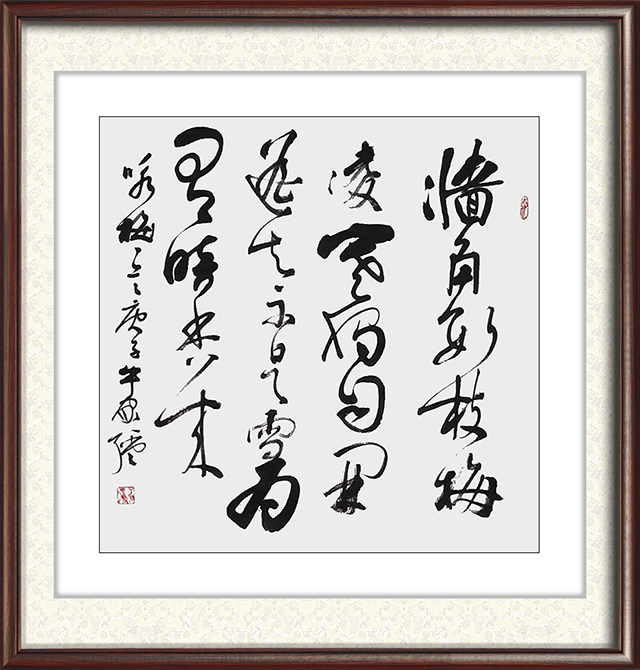 墙角数枝梅
凌寒独自开
遥知不是雪为
有暗香来
咏梅 庚子